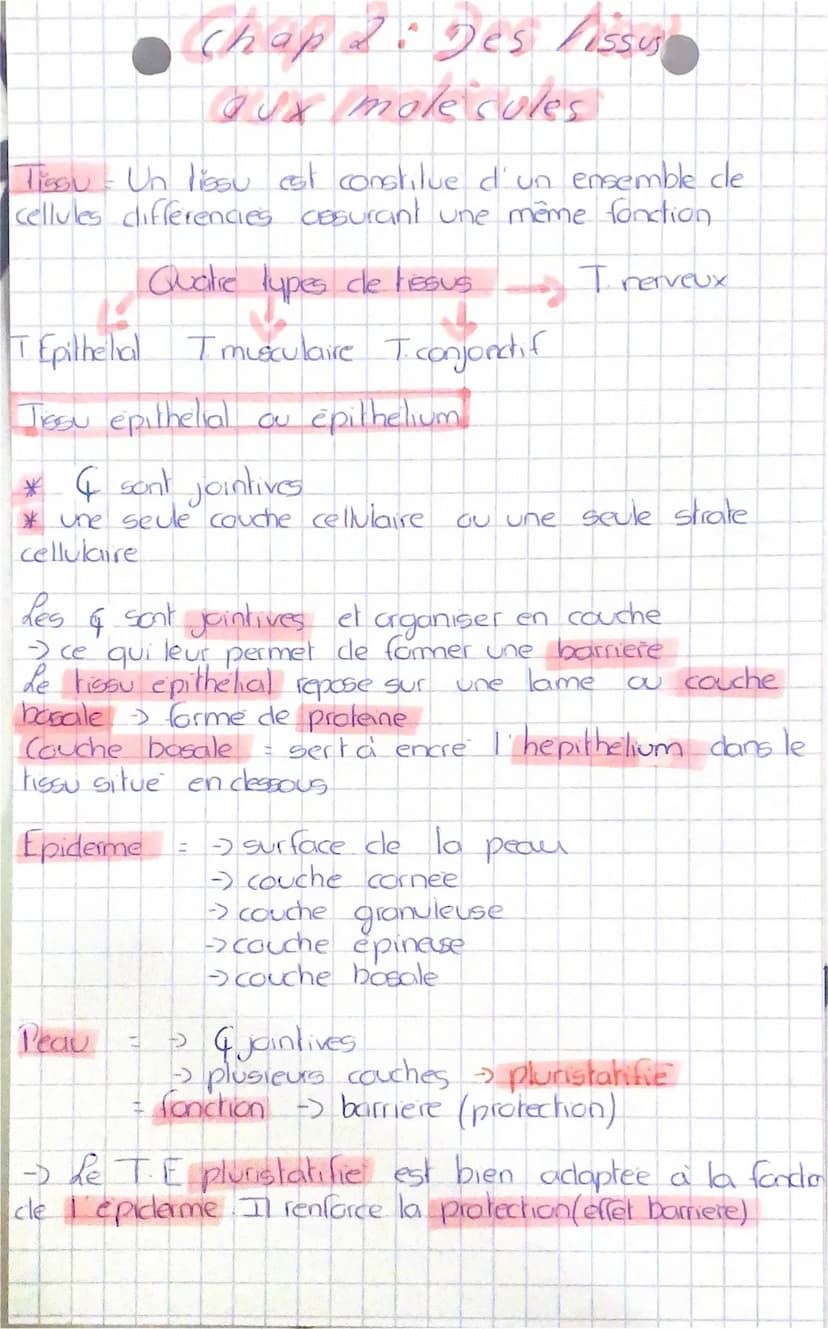 Chap 2 : Des tissus
aux molécules
Tissu = Un tissu est constitué d'un ensemble de
cellules différenciés assurant une même fonction
Quatre types de tissus → T. nerveux
T Epithélial T. musculaire T. conjonctif
Tissu épithélial ou épithélium
* ₵ sont jointives
* une seule couche cellulaire ou une seule strate
cellulaire
Les ₵ sont jointives et organiser en couche
→ ce qui leur permet de former une barrière
Le tissu épithélial repose sur une lame ou couche
basale → forme de protéine
Couche basale = sert à encré l'hépithélium dans le
tissu situé en dessous
Epiderme = → surface de la peau
→ couche cornée
→ couche granuleuse
→ couche épineuse
→ couche basale
Peau = → ₵ jointives
→ plusieurs couches → pluristatifié
= fonction → barrière (protection)
→ Le T.E pluristatifié est bien adaptée à la fonctio
de l'épiderme. Il renforce la protection (effet barrière)